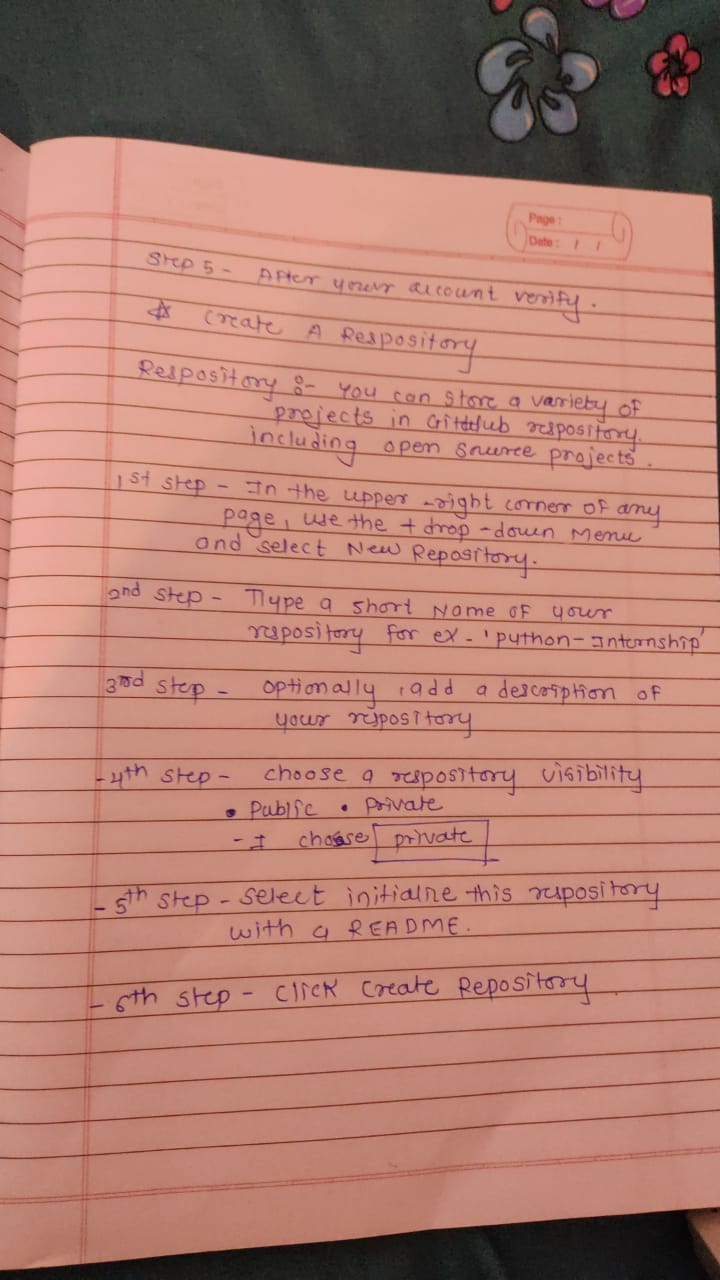 Page :
Date : / /
Step 5 - After your account verify.
☆ Create A Respository
Respository :- You can store a variety of
projects in GitHub respository.
including open source projects.
1st step - In the upper -right corner of any
page, use the + drop-down Menu
and select New Repository.
2nd step - Type a short Name of your
respository for ex - 'python-Internship'
3rd step - optionally, add a description of
your respository
- 4th step - choose a respository visibility
• Public • Private
- I choose private
- 5th step - select initialize this respository
with a README.
- 6th step - click Create Repository